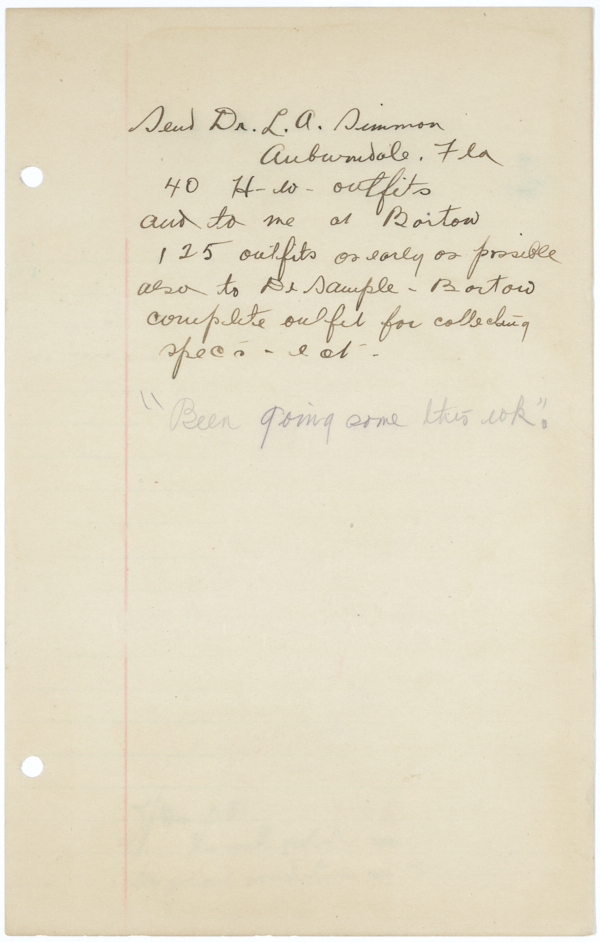 Send Dr. L. A. Simmon
Auburndale. Fla
40 H-w- outfits
and to me at Bartow
125 outfits as early as possible
also to Dr Sample - Bartow
complete outfit for collecting
spec's - e at -
"Been going some this wk".